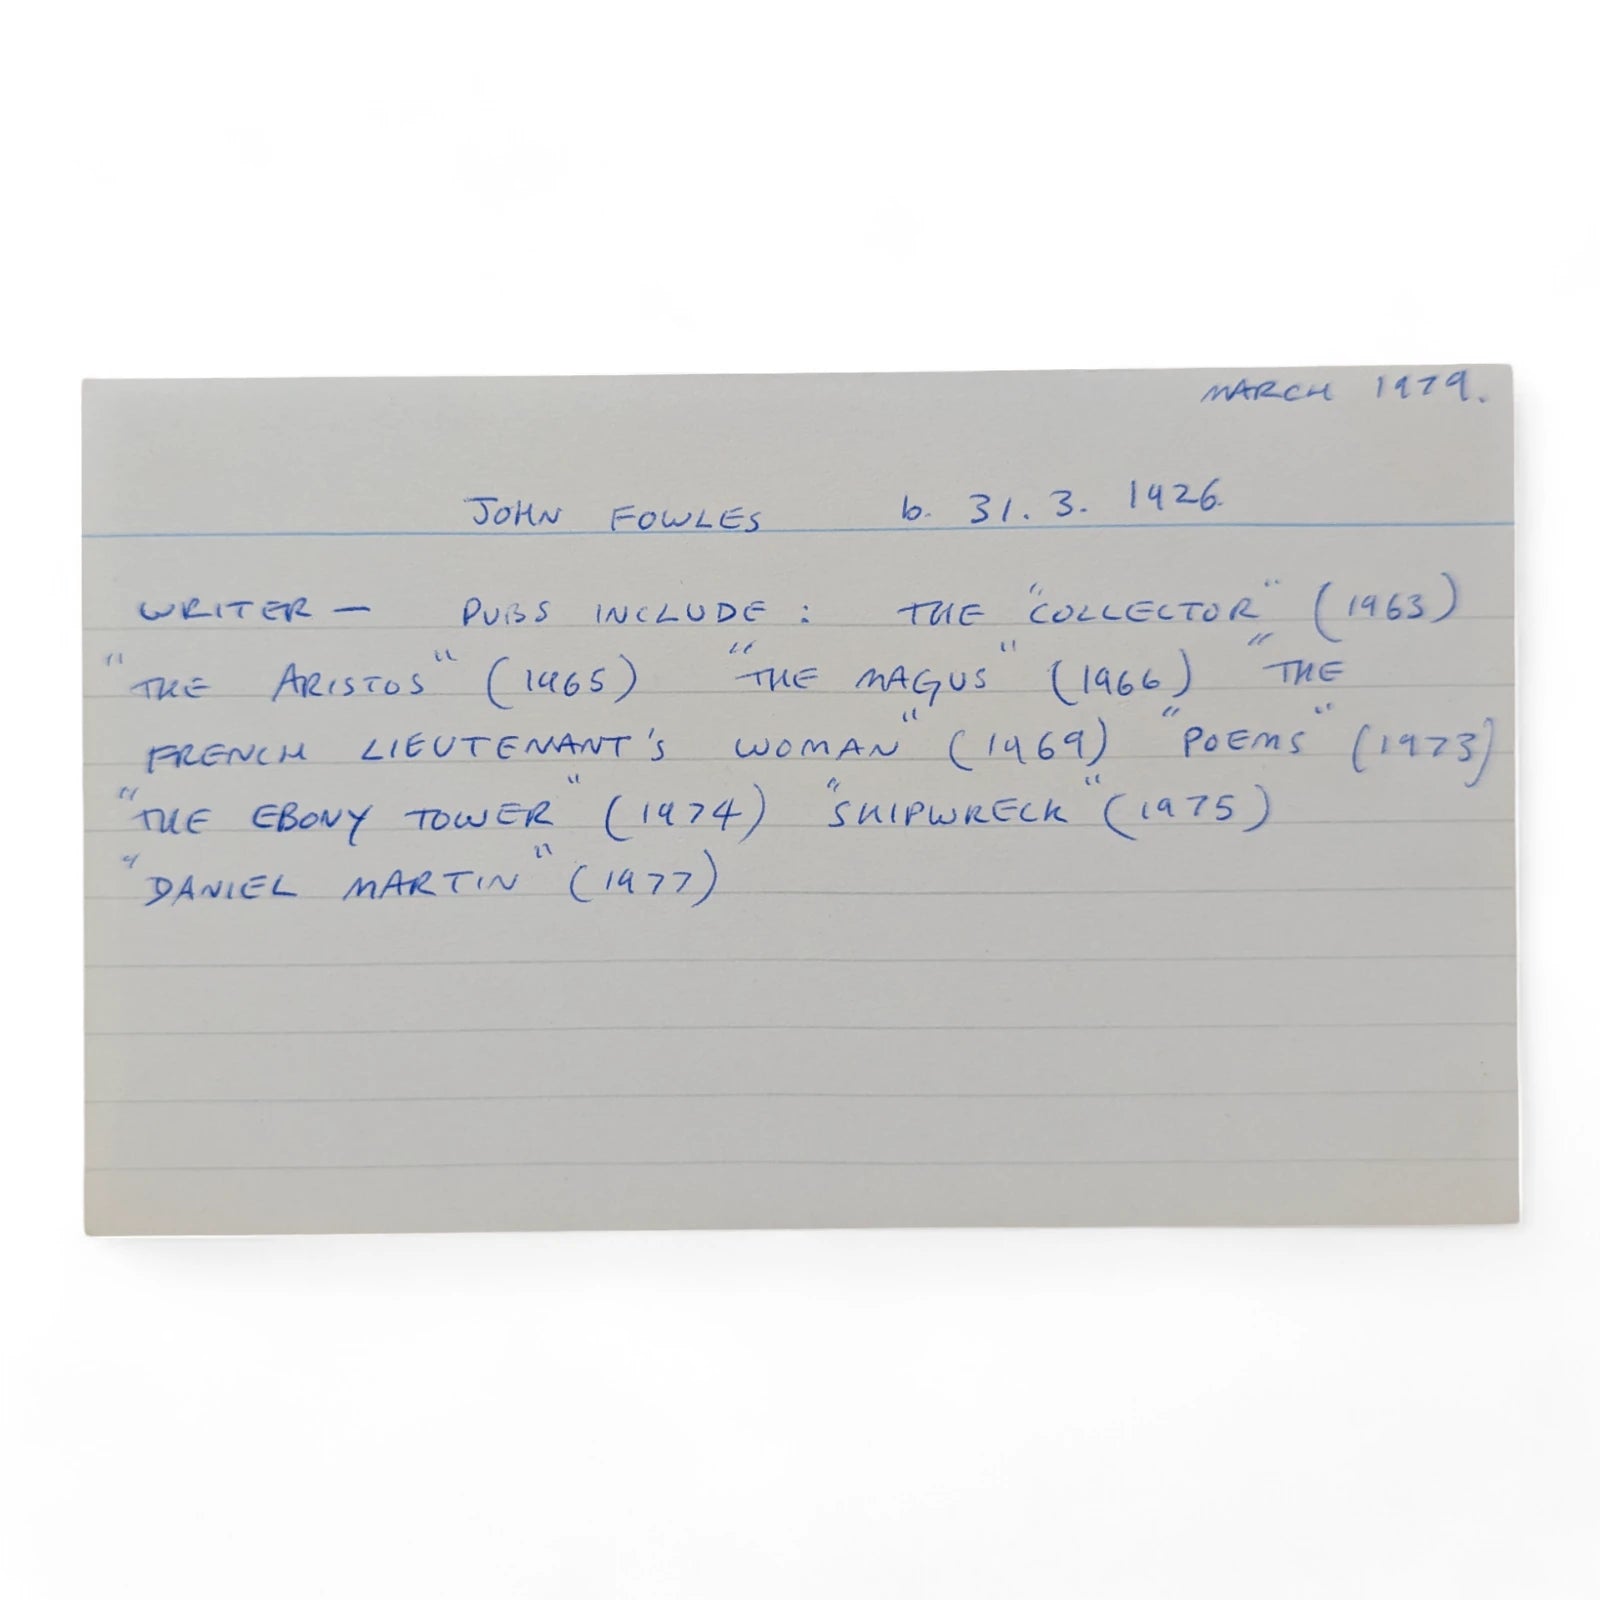 MARCH 1979.
JOHN FOWLES b. 31. 3. 1926.
WRITER — PUBS INCLUDE : THE "COLLECTOR" (1963)
"THE ARISTOS" (1965) "THE MAGUS" (1966) "THE
FRENCH LIEUTENANT'S WOMAN" (1969) "POEMS" (1973)
"THE EBONY TOWER" (1974) "SHIPWRECK" (1975)
"DANIEL MARTIN" (1977)